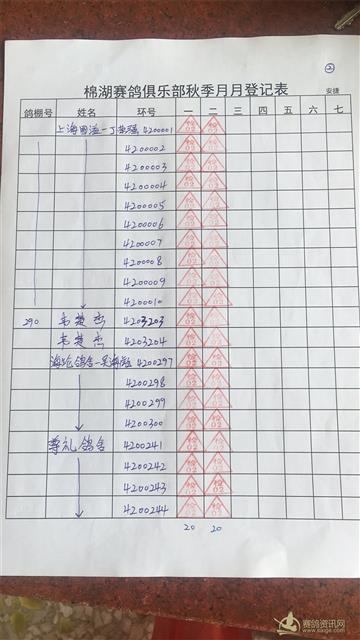 ②
棉湖赛鸽俱乐部秋季月月登记表
安捷
鸽棚号 姓名 环号 一 二 三 四 五 六 七
上海 4200001
4200002
4200003
4200004
4200005
4200006
4200007
4200008
4200009
4200010
290 韦楚杰 4203203
韦楚杰 4203204
鸽舍 4200297
4200298
4200299
4200300
尊礼鸽舍 4200241
4200242
4200243
4200244
20 20
赛鸽资讯网
www.saige.com